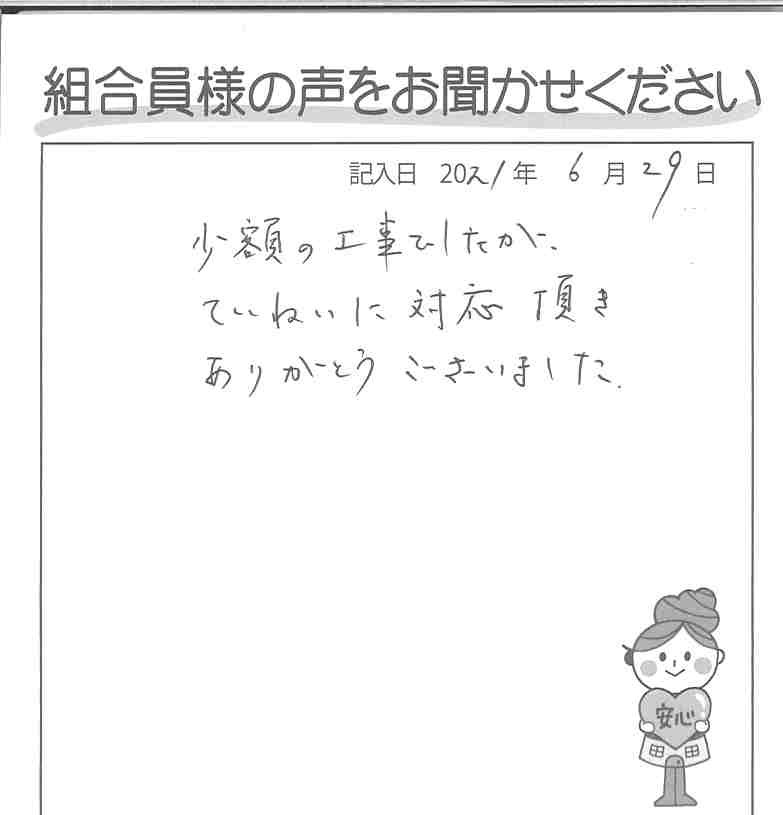 組合員様の声をお聞かせください
記入日 2021年 6月29日
少額の工事でしたが、
ていねいに対応頂き
ありがとうございました。
安心